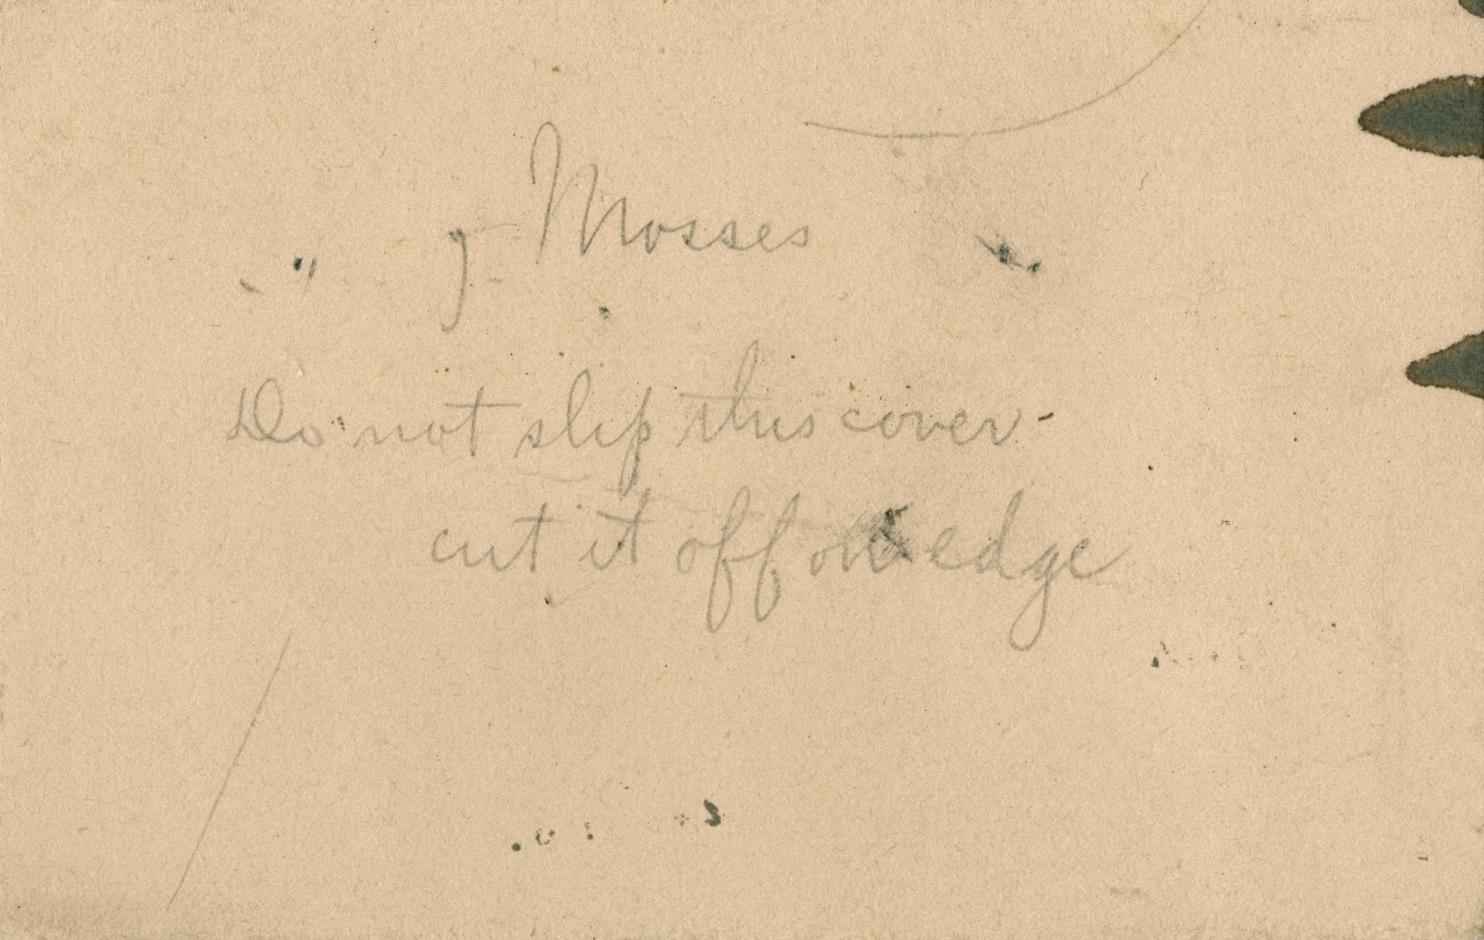 g Mosses
Do not slip this cover
cut it off on edge